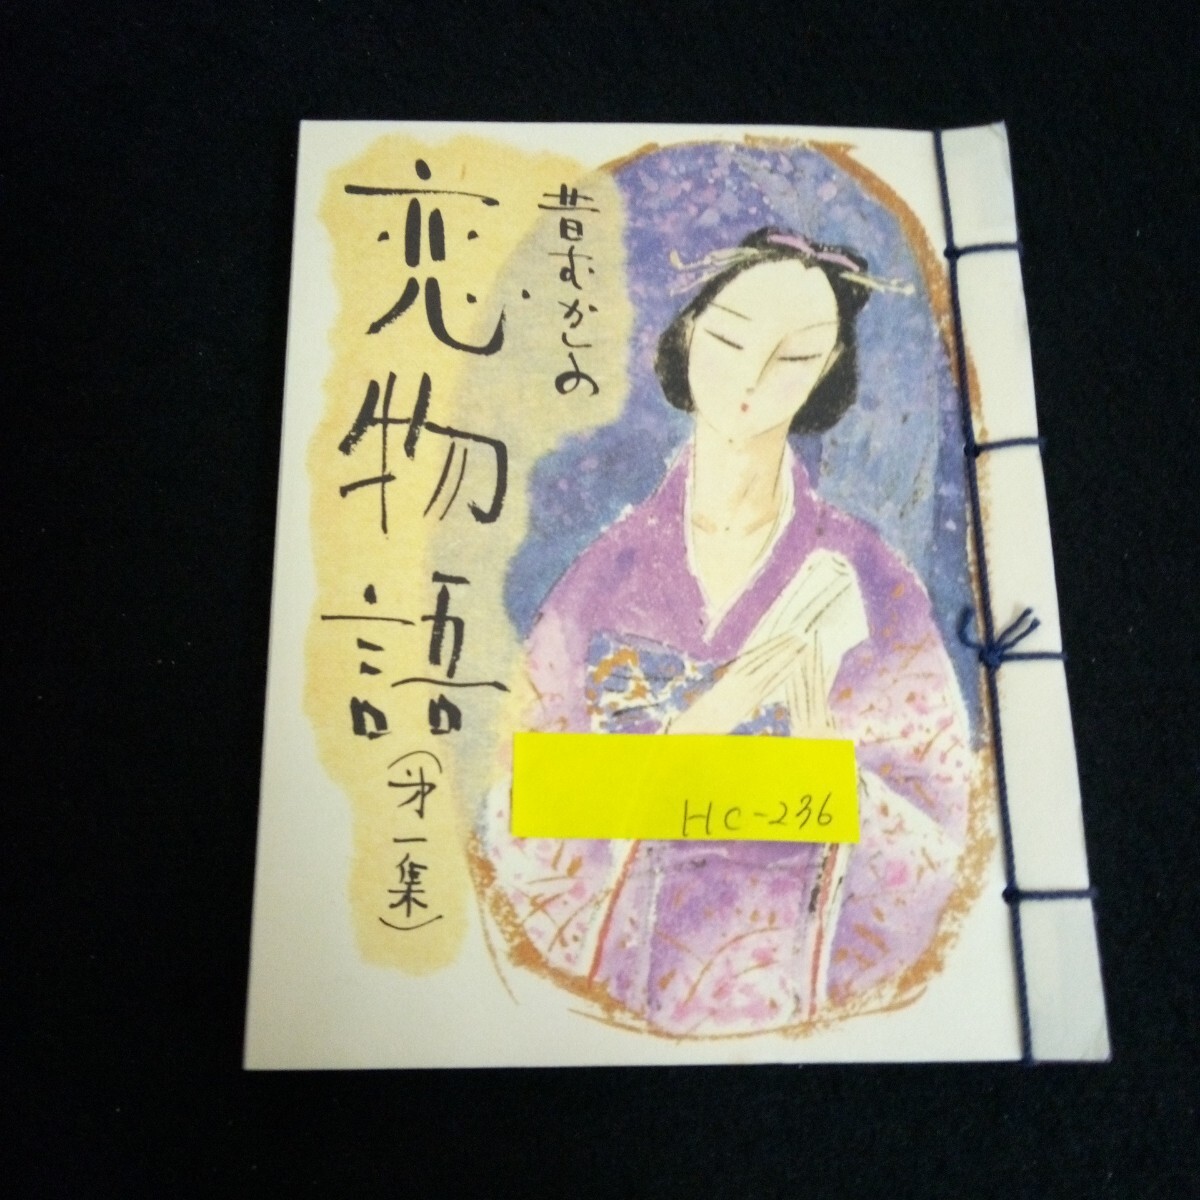 昔むかしの
恋物語
(第一集)
HC-236